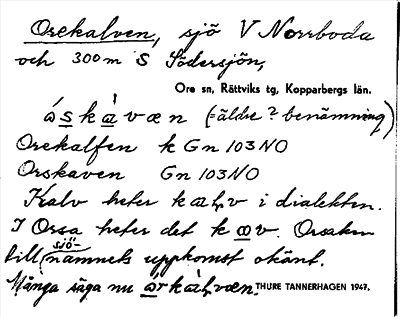 Orekalven, sjö V Norrboda
och 300 m S Södersjön,
Ore sn, Rättviks tg, Kopparbergs län.
áskàvæn (=äldre? benämning)
Orekalfen k Gn 103 NO
Orskaven Gn 103 NO
Kalv heter kaɫv i dialekten.
I Orsa heter det kav. Orsaken
till sjönamnets uppkomst okänt.
Många säga nu árkàɫvæn. THURE TANNERHAGEN 1947.